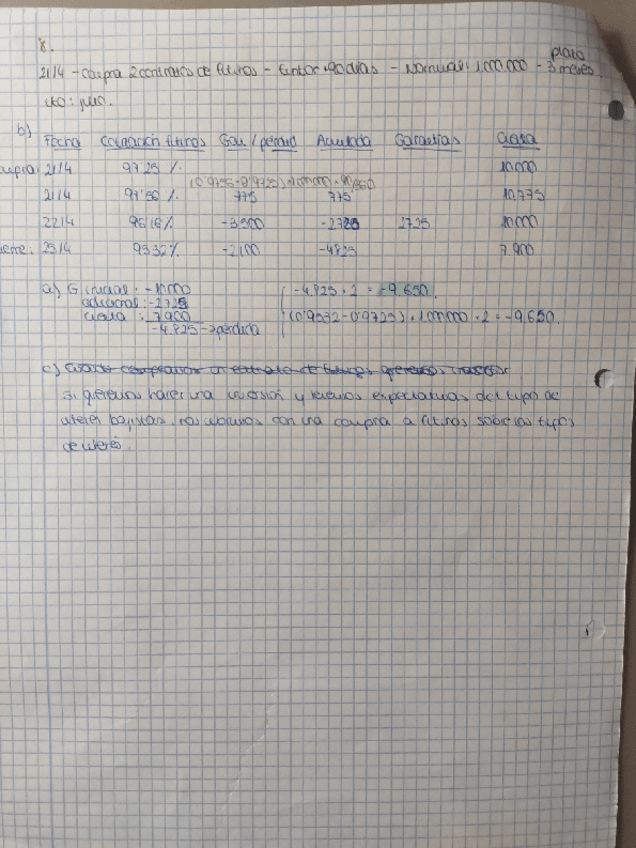 8.
plazo
21/4 - Compra 2 contratos de futuros - Euribor 90 días - Nominal: 1.000.000 - 3 meses.
vto: junio.
b) Fecha Cotización futuros Gan/pérdida Acumulado Garantías Cuenta
compra: 21/4 97'25 % 10.000
(0'9756-0'9725) · 1.000.000 · 90/360
21/4 97'56 % 775 775 10.775
22/4 96'16 % -3.500 -2725 2725 10.000
cierre: 25/4 95'32 % -2.100 -4825 7.900
a) G inicial: -10.000
adicional: -2725
cuenta: 7.900
-4.825 → pérdida
-4.825 · 2 = -9.650.
(0'9532-0'9725) · 1.000.000 · 2 = -9.650.
c)
Si queremos hacer una inversión y tenemos expectativas del tipo de
interés bajistas, nos cubrimos con una compra a futuros sobre los tipos
de interés.